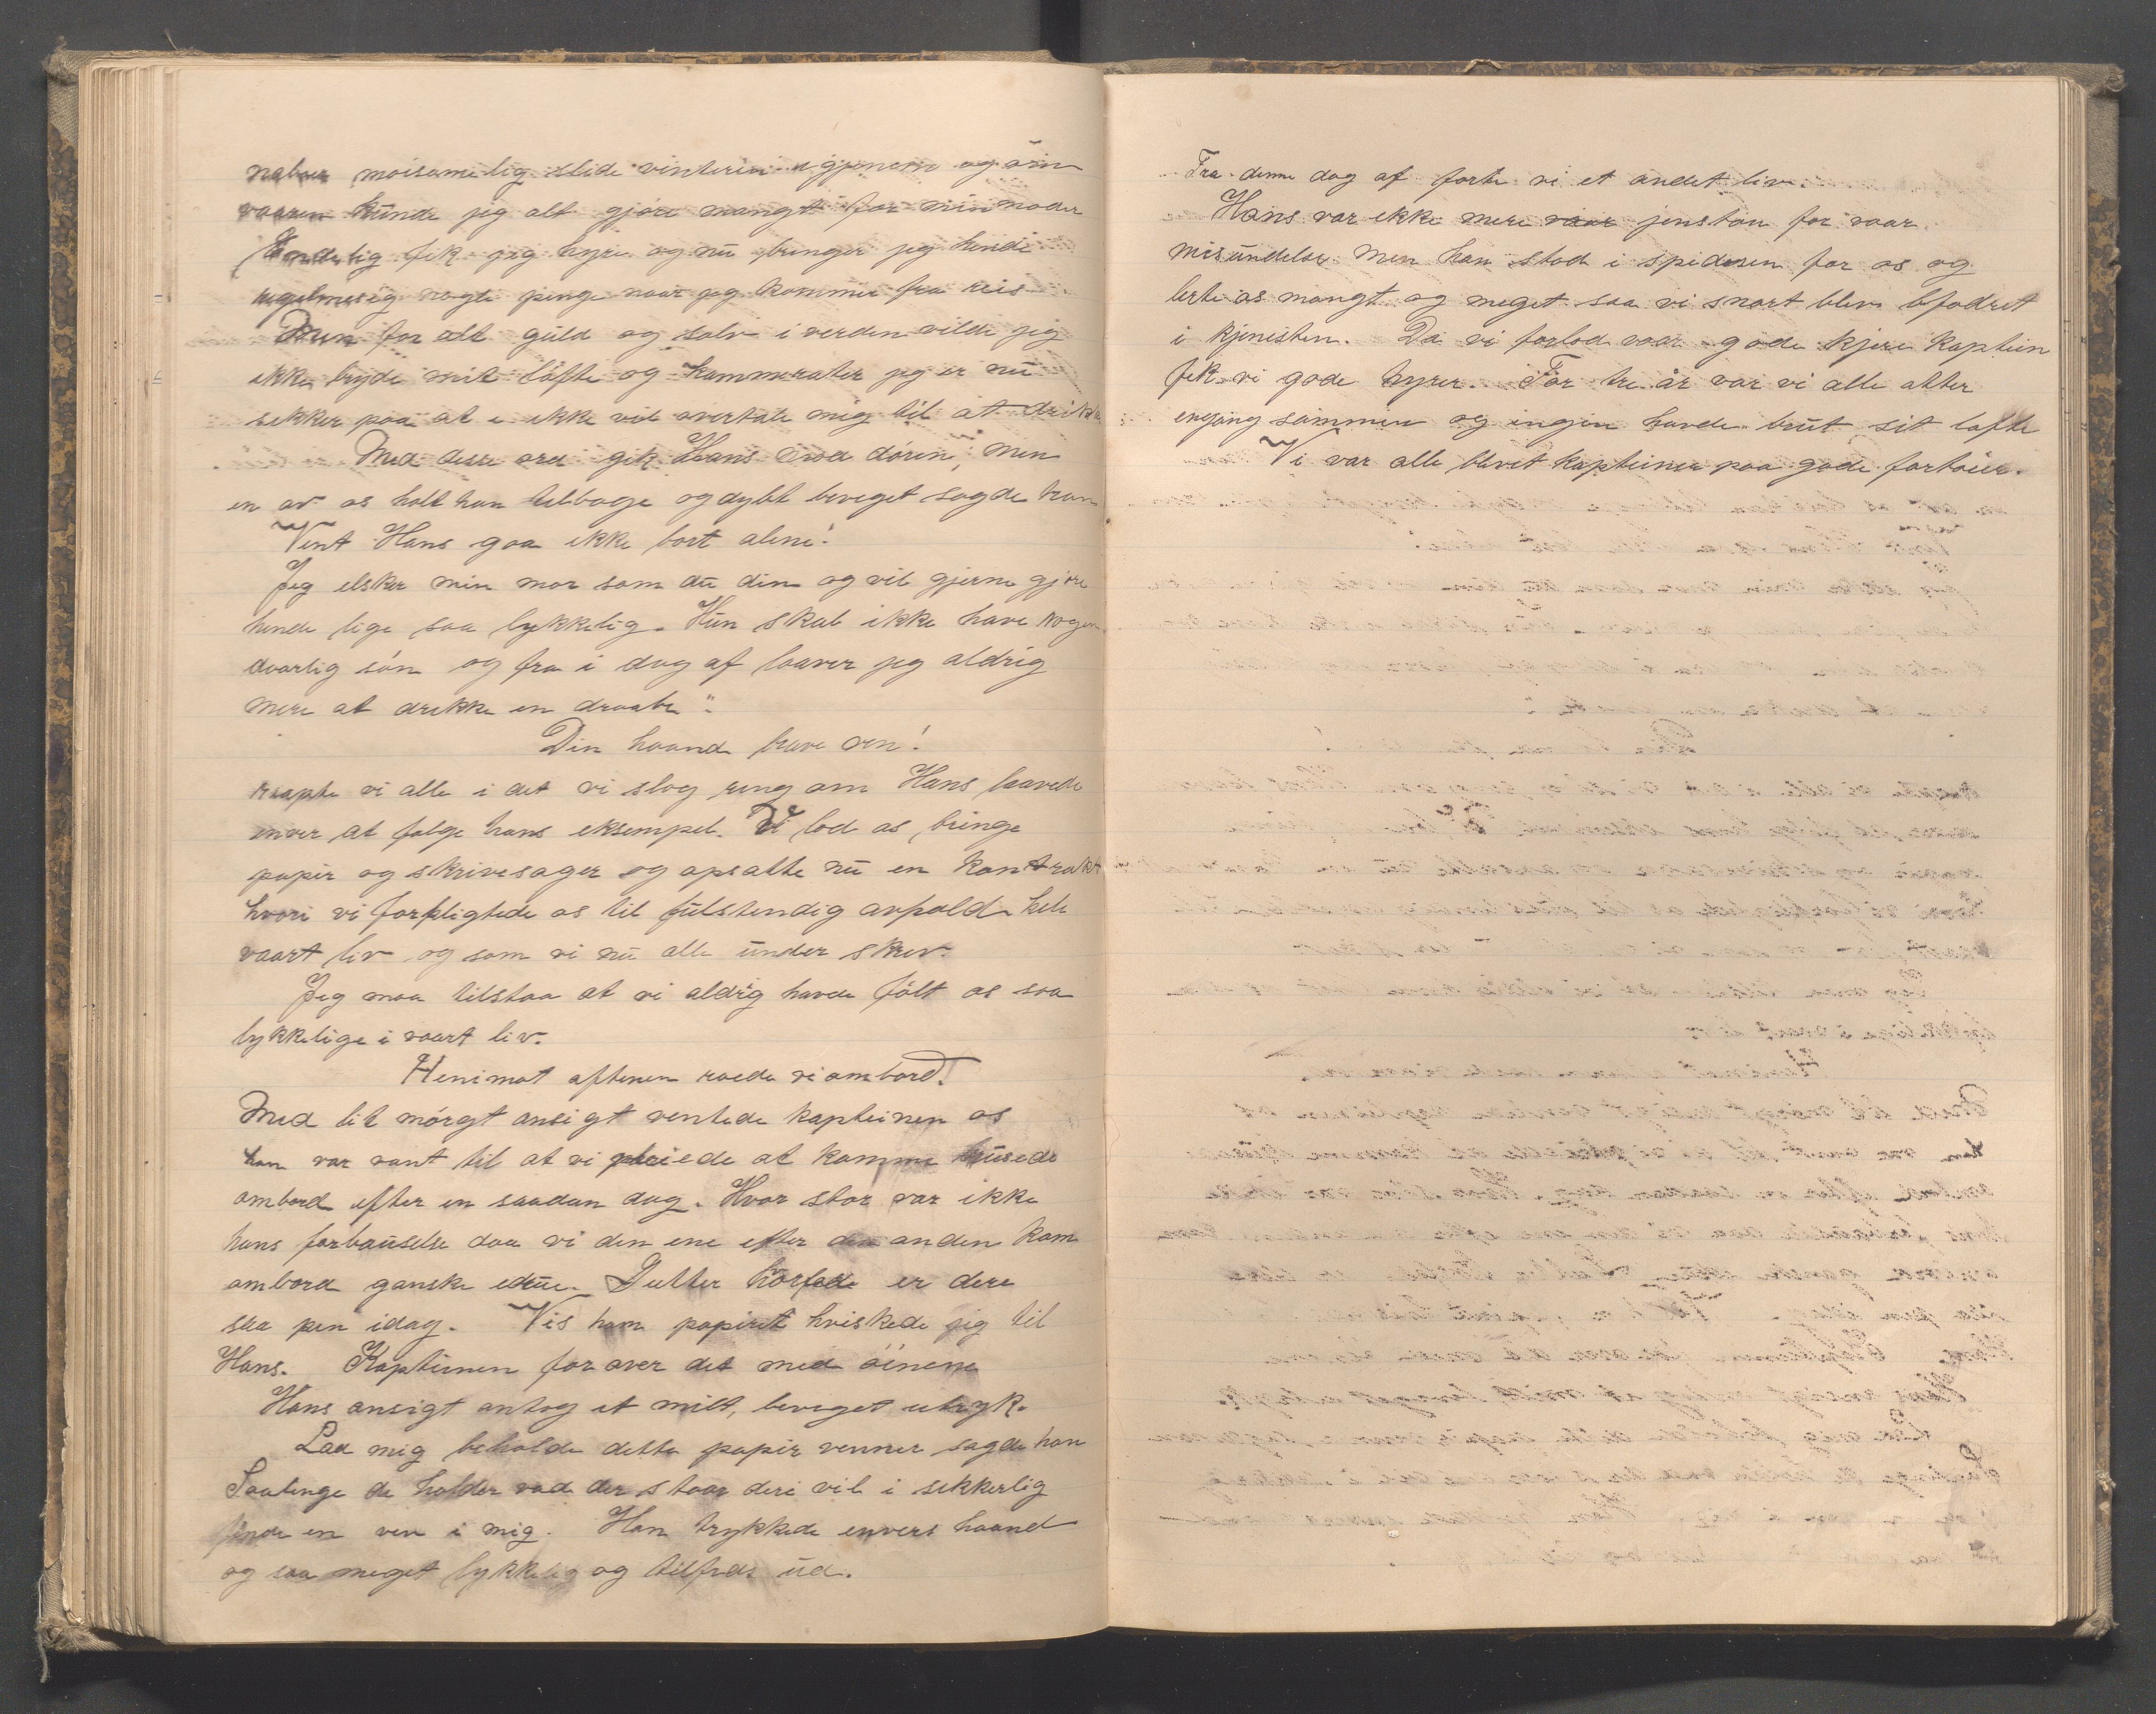 naboer moisomelig slide vinteren igjenem og om
vaaren kunde jeg alt gjøre mangt for min moder
Endelig fik jeg hyre og nu bringer jeg hende
regelmesig nogle penge naar jeg kommer fra reis
Men for alt guld og sølv i verden vilde jeg
ikke bryde mit løfte og kammerater jeg er nu
sekker paa at i ikke vil overtale mig til at drikke
Med desse ord gik Hans mod døren, men
en av os holt han tilbage og dybt beveget sagde han
Vent Hans gaa ikke bort alene!
Jeg elsker min mor som du din og vil gjerne gjøre
hende lige saa lykkelig. Hun skal ikke have nogen
daarlig søn og fra i dag af laaver jeg aldrig
mere at drikke en draabe".
Din haand brave ven!
raapte vi alle i det vi slog ring om Hans laavede
enver at følge hans eksempel. Vi lod os bringe
papir og skrivesager og opsatte nu en kontrakt
hvori vi forpligtede os til fulstendig avhold hele
vaart liv og som vi nu alle under skrev.
Jeg maa tilstaa at vi aldrig havde følt os saa
lykkelige i vaart liv.
Henimot aftenen roede vi ombord.
Med lit mørgt ansigt ventede kapteinen os
han var vant til at vi pleiede at komme
ombord efter en saadan dag. Hvor stor var ikke
hans forbauselse daa vi den ene efter den anden kom
ombord ganske edru. Gutter hvorfode er dere
saa pen idag. Vis ham papiret hviskede jeg til
Hans. Kapteinen for over det med øinene
Hans ansigt antog et milt, beveget utryk.
Laa mig beholde dette papir venner sagde han
Saalenge de holder vad der staar deri vil i sekkerlig
finde en ven i mig. Han trykkede envers haand
og saa meget lykkelig og tilfreds ud.
Fra denne dag af førte vi et andet liv.
Hans var ikke mere vaar jenstan for vaar
misundelse men han stod i spidsen for os og
lerte os mangt og meget saa vi snart blev bfodret
i tjenesten. Da vi forlod vaar gode kjere kaptein
fik vi gode hyrer. For tre år var vi alle atter
engang sammen og ingen havde brut sit løfte
Vi var alle blevet kapteiner paa gode fartøier.